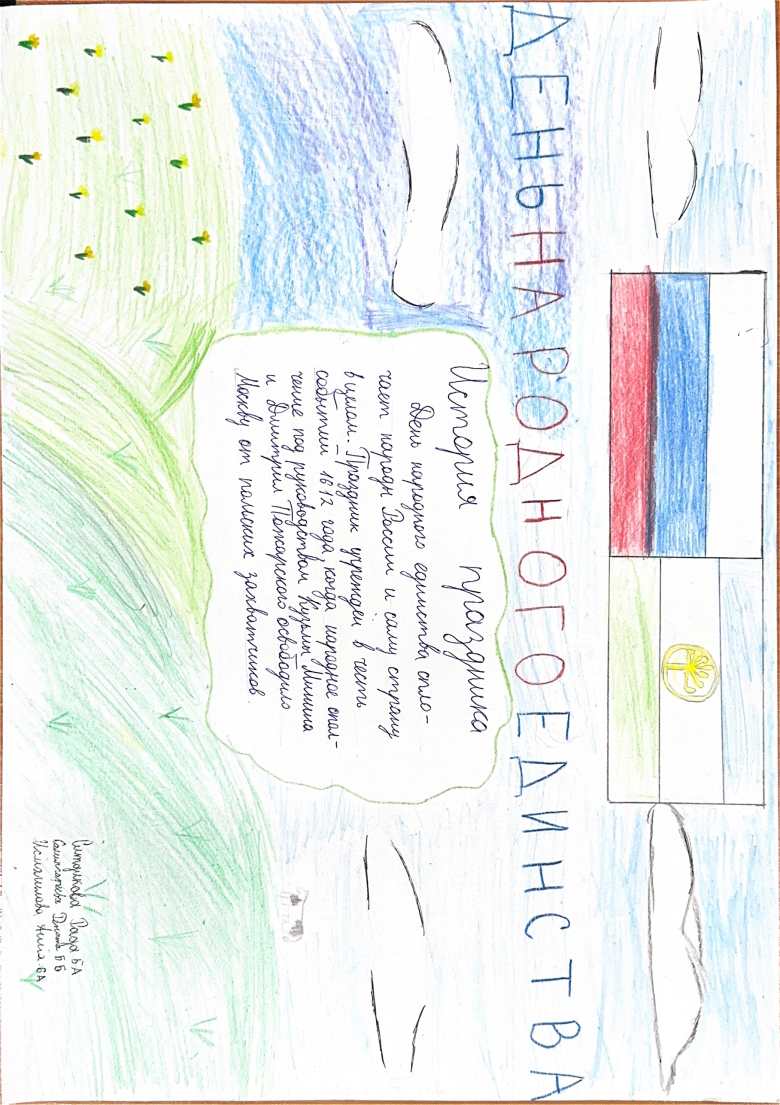 ДЕНЬ НАРОДНОГО ЕДИНСТВА
История праздника
День народного единства спло-
чает народы России и саму страну
в целом. Праздник учрежден в честь
событий 1612 года, когда народное опол-
чение под руководством Кузьмы Минина
и Дмитрия Пожарского освободило
Москву от польских захватчиков.
Ситдикова Рада 6А
6Б
Исмагилова 6А